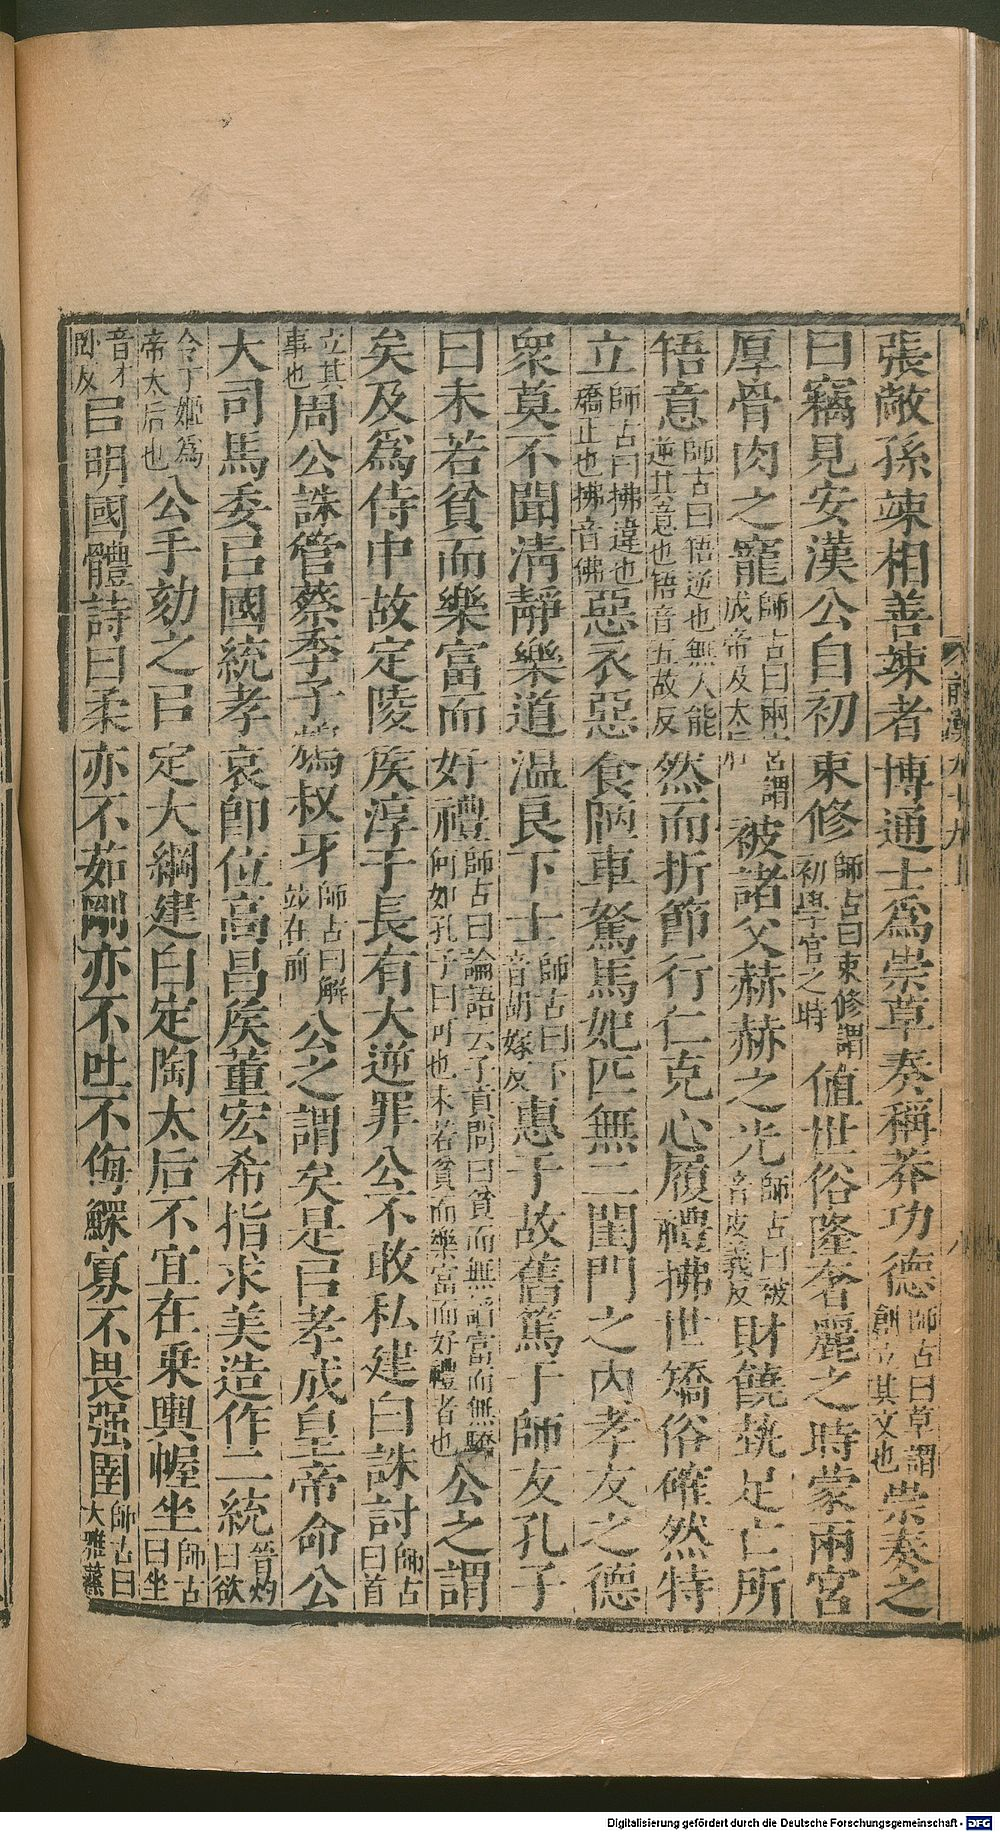 張敞孫竦相善竦者博通士爲崇草奏稱莽功德師古曰草謂創立其文也崇奏之
曰竊見安漢公自初束修師古曰束修謂初學官之時値世俗隆奢麗之時蒙兩宮
厚骨肉之寵師古曰兩宮謂成帝及太后被諸父赫赫之光師古曰被音皮義反財饒埶足亡所
啎意師古曰啎逆也無人能逆其意也啎音五故反然而折節行仁克心履禮拂世矯俗確然特
立師古曰拂違也矯正也拂音佛惡衣惡食陋車駑馬妃匹無二閨門之內孝友之德
衆莫不聞淸靜樂道溫良下士師古曰下音胡嫁反惠于故舊篤于師友孔子
曰未若貧而樂富而好禮師古曰論語云子貢問曰貧而無諂富而無驕何如孔子曰可也未若貧而樂富而好禮者也公之謂
矣及爲侍中故定陵侯淳于長有大逆罪公不敢私建白誅討師古曰首
立其事也周公誅管蔡季子鴆叔牙師古曰解竝在前公之謂矣是㠯孝成皇帝命公
大司馬委㠯國統孝哀卽位高昌侯董宏希指求美造作二統晉灼曰欲
令丁姬爲帝太后也公手劾之㠯定大綱建白定陶太后不宜在乗輿幄坐師古曰坐
音才卧反㠯明國體詩曰柔亦不茹剛亦不吐不侮鰥寡不畏强圉師古曰大雅蒸
前漢九十九上
八
Digitalisierung gefördert durch die Deutsche Forschungsgemeinschaft - DFG